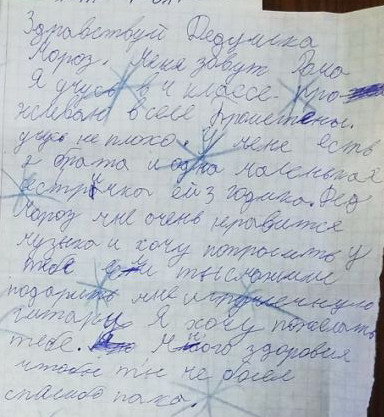 Здравствуй Дедушка
Мороз. Меня завут Рома
Я учусь в 4 классе. Про
живаю в селе
учусь не плохо. У меня есть
2 брата и одна маленькая
сестрычка ей 3 годика. Дед
Мороз мне очень нравится
музыка и хочу попросить у
тебя
подарить мне
гитару Я хочу пожелать
тебе. Много здоровия
чтобы ты не болел
спасибо пака.